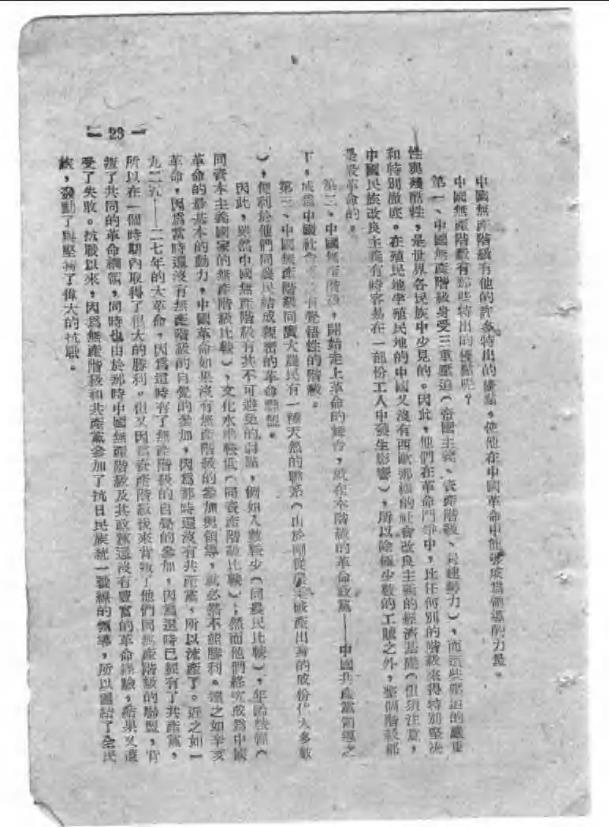 中國無產階級有他的許多特出的優點，使他在中國革命中能夠成爲領導的力量。
中國無產階級有那些特出的優點呢？
第一、中國無產階級身受三重壓迫（帝國主義、資產階級、封建勢力），而這些壓迫的嚴重
性與殘酷性，是世界各民族中少見的。因此，他們在革命鬥爭中，比任何別的階級來得特別堅决
和特別澈底。在殖民地半殖民地的中國又沒有西歐那樣的社會改良主義的經濟基礎（但須注意，
中國民族改良主義有時容易在一部份工人中發生影響），所以除極少數的工賊之外，整個階級都
是最革命的。
第二、中國無產階級，開始走上革命的舞台，就在本階級的革命政黨——中國共產黨領導之
下，成爲中國社會有覺悟性的階級。
第三、中國無產階級同廣大農民有一種天然的聯系（由於剛從農業破產出身的成份佔大多數
），便利於他們同農民結成親密的革命聯盟。
因此，雖然中國無產階級有其不可避免的弱點，例如人數較少（同農民比較），年齡較輕（
同資本主義國家的無產階級比較），文化水準較低（同資產階級比較）；然而他們終究成爲中國
革命的最基本的動力，中國革命如果沒有無產階級的參加與領導，就必然不能勝利。遠之如辛亥
革命，因爲當時還沒有無產階級的自覺的參加，因爲那時還沒有共產黨，所以流產了。近之如一
九二五——二七年的大革命，因爲這時有了無產階級的自覺的參加，因爲這時已經有了共產黨，
所以在一個時期內取得了很大的勝利。但又因爲資產階級後來背叛了他們同無產階級的聯盟，背
叛了共同的革命綱領，同時也由於那時中國無產階級及其政黨還沒有豐富的革命經驗，結果又遭
受了失敗。抗戰以來，因爲無產階級和共產黨參加了抗日民族統一戰線的領導，所以團結了全民
族，發動了與堅持了偉大的抗戰。
— 23 —